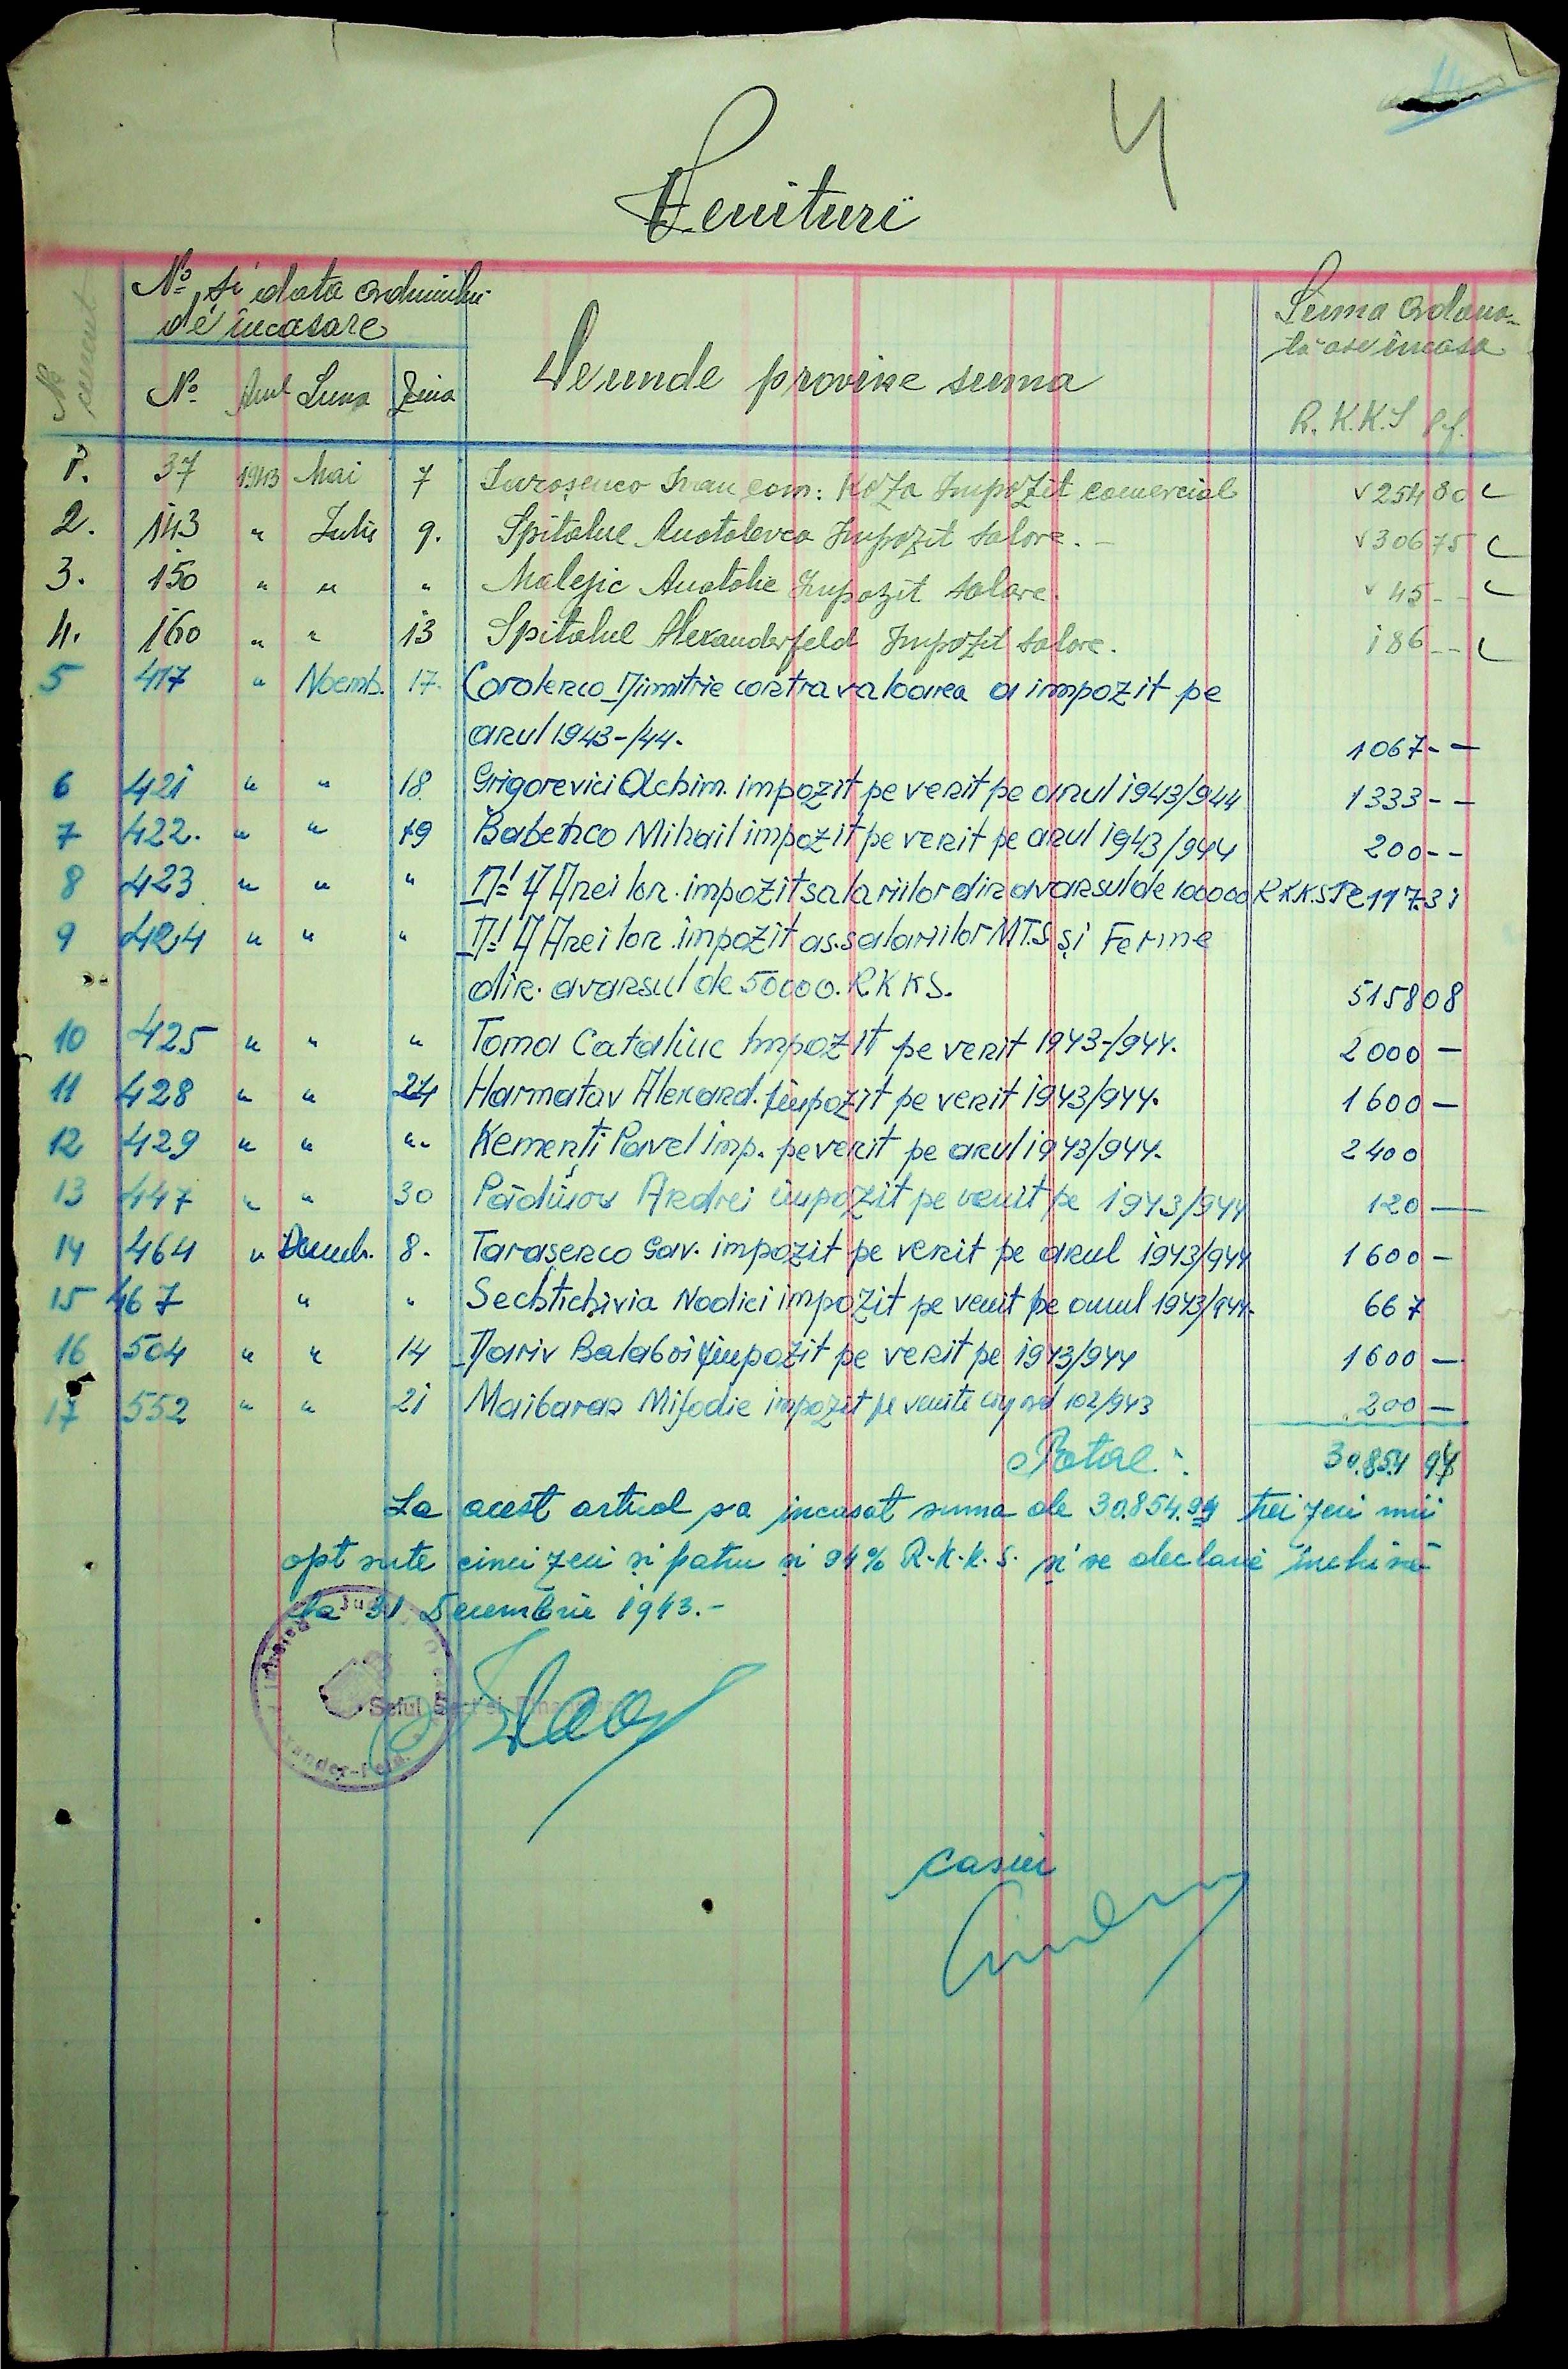 4
Venituri
No curent
No și data ordinului
de încasare
No Anul Luna Ziua
De unde provine suma
Suma ordona-
tă a se încasa
R.K.K.S Pf.
1. 37 1943 Mai 7 Ivan com: Impozit comercial 254 80
2. 143 " Iulie 9. Spitalul Anatolevca Impozit salare. - 306 75
3. 150 " " " Anatolie Impozit salare. 45 - -
4. 160 " " 13 Spitalul Alexanderfeld Impozit salare. 186 - -
5 417 " Noemb. 17. Corolenco Dimitrie contravaloarea a impozit pe
anul 1943-/44. 1067 - -
6 421 " " 18. Grigorevici Achim. impozit pe venit pe anul 1943/944 1333 - -
7 422. " " 19 Babenco Mihail impozit pe venit pe anul 1943/944 200 - -
8 423 " " " impozit salariilor din avansul de 100000 RKKS Pe 117.31
9 424 " " " impozit as. salariilor M.T.S. și Ferme
din. avansul de 50000. R.K.K.S. 5158 08
10 425 " " " Toma Cataliuc Impozit pe venit 1943-/944. 2000 -
11 428 " " 24 Harmatav Alexand. impozit pe venit 1943/944. 1600 -
12 429 " " " - Kementi Pavel imp. pe venit pe anul 1943/944. 2400
13 447 " " 30 Andrei impozit pe venit pe 1943/944 120 -
14 464 " Decemb. 8. Tarasenco Gav. impozit pe venit pe anul 1943/944 1600 -
15 467 " " impozit pe venit pe anul 1943/944. 667
16 504 " " 14 impozit pe venit pe 1943/944 1600 -
17 552 " " 21 Mifodie impozit pe venit 102/943 200 -
Total: 30.854 94
La acest articol s-a incasat suma de 30.854.94 trei zeci mii
opt sute cinci zeci și patru și 94% R.K.K.S. și se declară închis
la 31 Decembrie 1943.-
Șeful Secției
casier